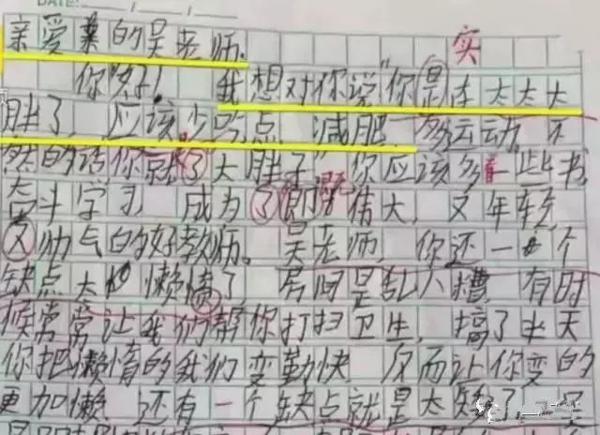 DATE: / /
亲爱的吴老师。
实
你好！我想对你说“你是在太太太
胖了，应该少吃点，减肥，多运动，不
然的话你就了大胖子”你应该多看一些书，
奋斗学习，成为了即既伟大，又年轻，
又帅气的好教师。吴老师，你还一个
缺点太懒惰了，房间是乱八糟，有时
候常常让我们帮你打扫卫生，搞了半天
你把懒惰的我们变勤快，反而让你变的
更加懒，还有一个缺点就是太矮了，